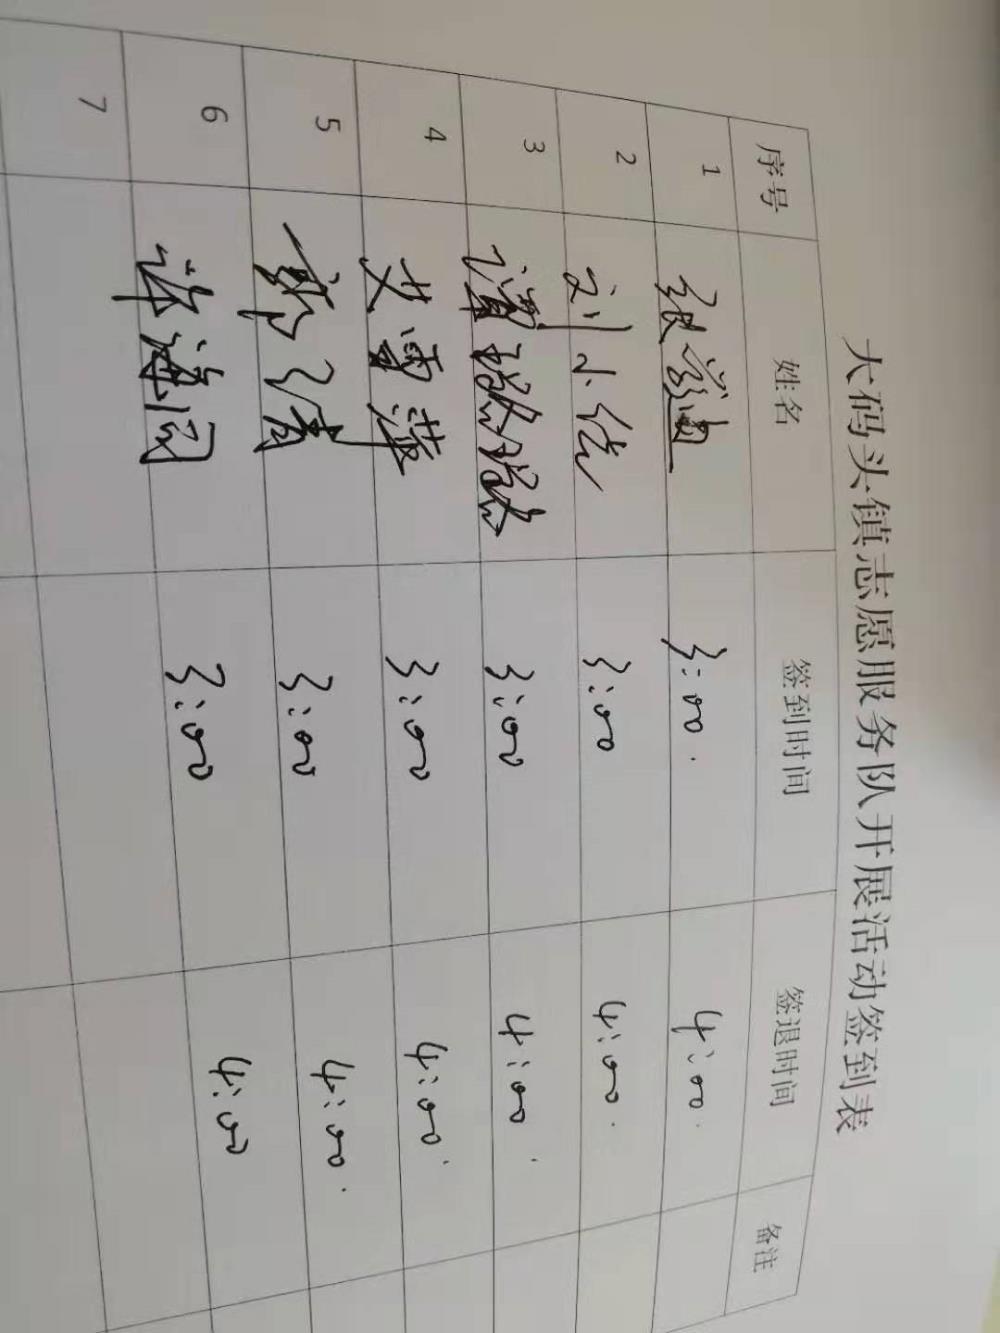 大码头镇志愿服务队开展活动签到表
序号 姓名 签到时间 签退时间 备注
1 张学迪 3:00 4:00
2 刘小倩 3:00 4:00
3 谭璐璐 3:00 4:00
4 艾雪萍 3:00 4:00
5 3:00 4:00
6 3:00 4:00
7